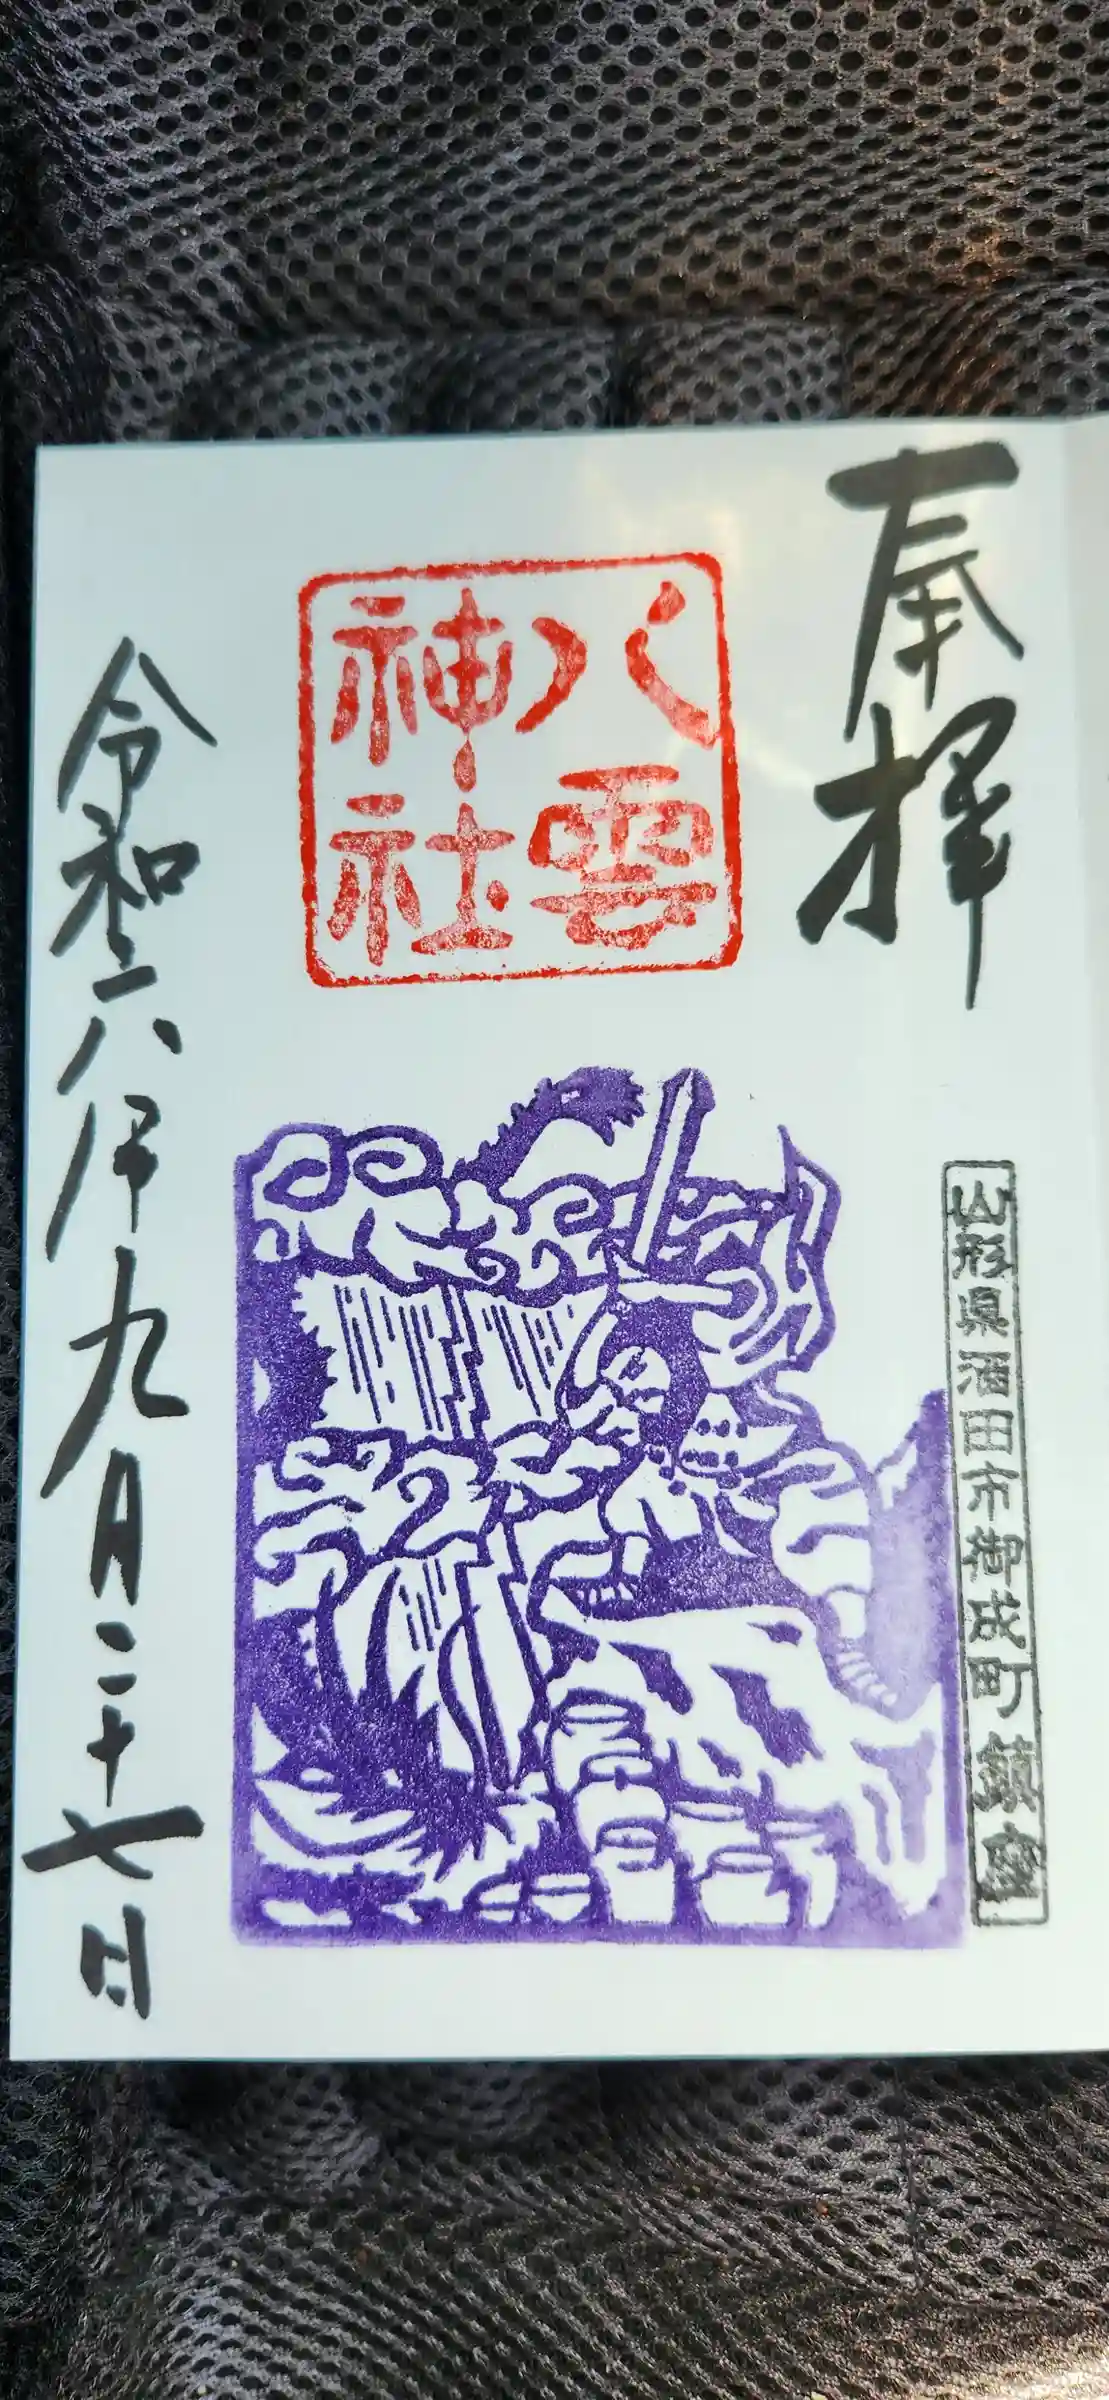 奉拝
山形県酒田市御成町鎮座
八雲
神社
令和六年九月二十七日